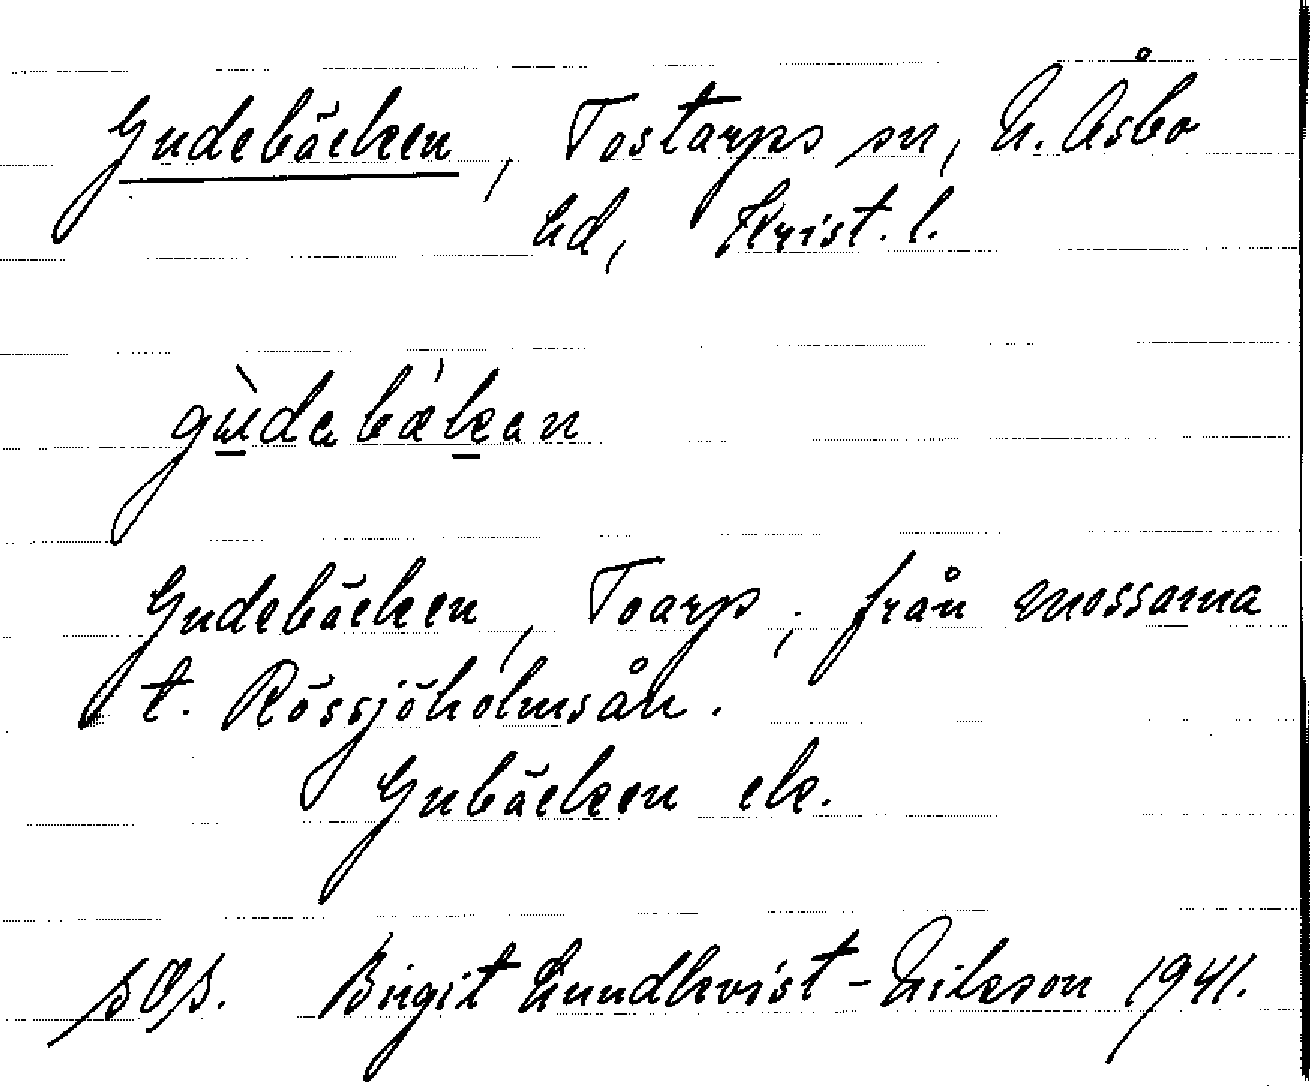 Gudebäcken, Tostarps sn, N. Åsbo
hd, Krist. l.
gùdabækan
Gudebäcken, Toarp, från mossarna
t. Rössjöholmsån.
Gubäcken ek.
Birgit Lundkvist-Nilsson 1941.